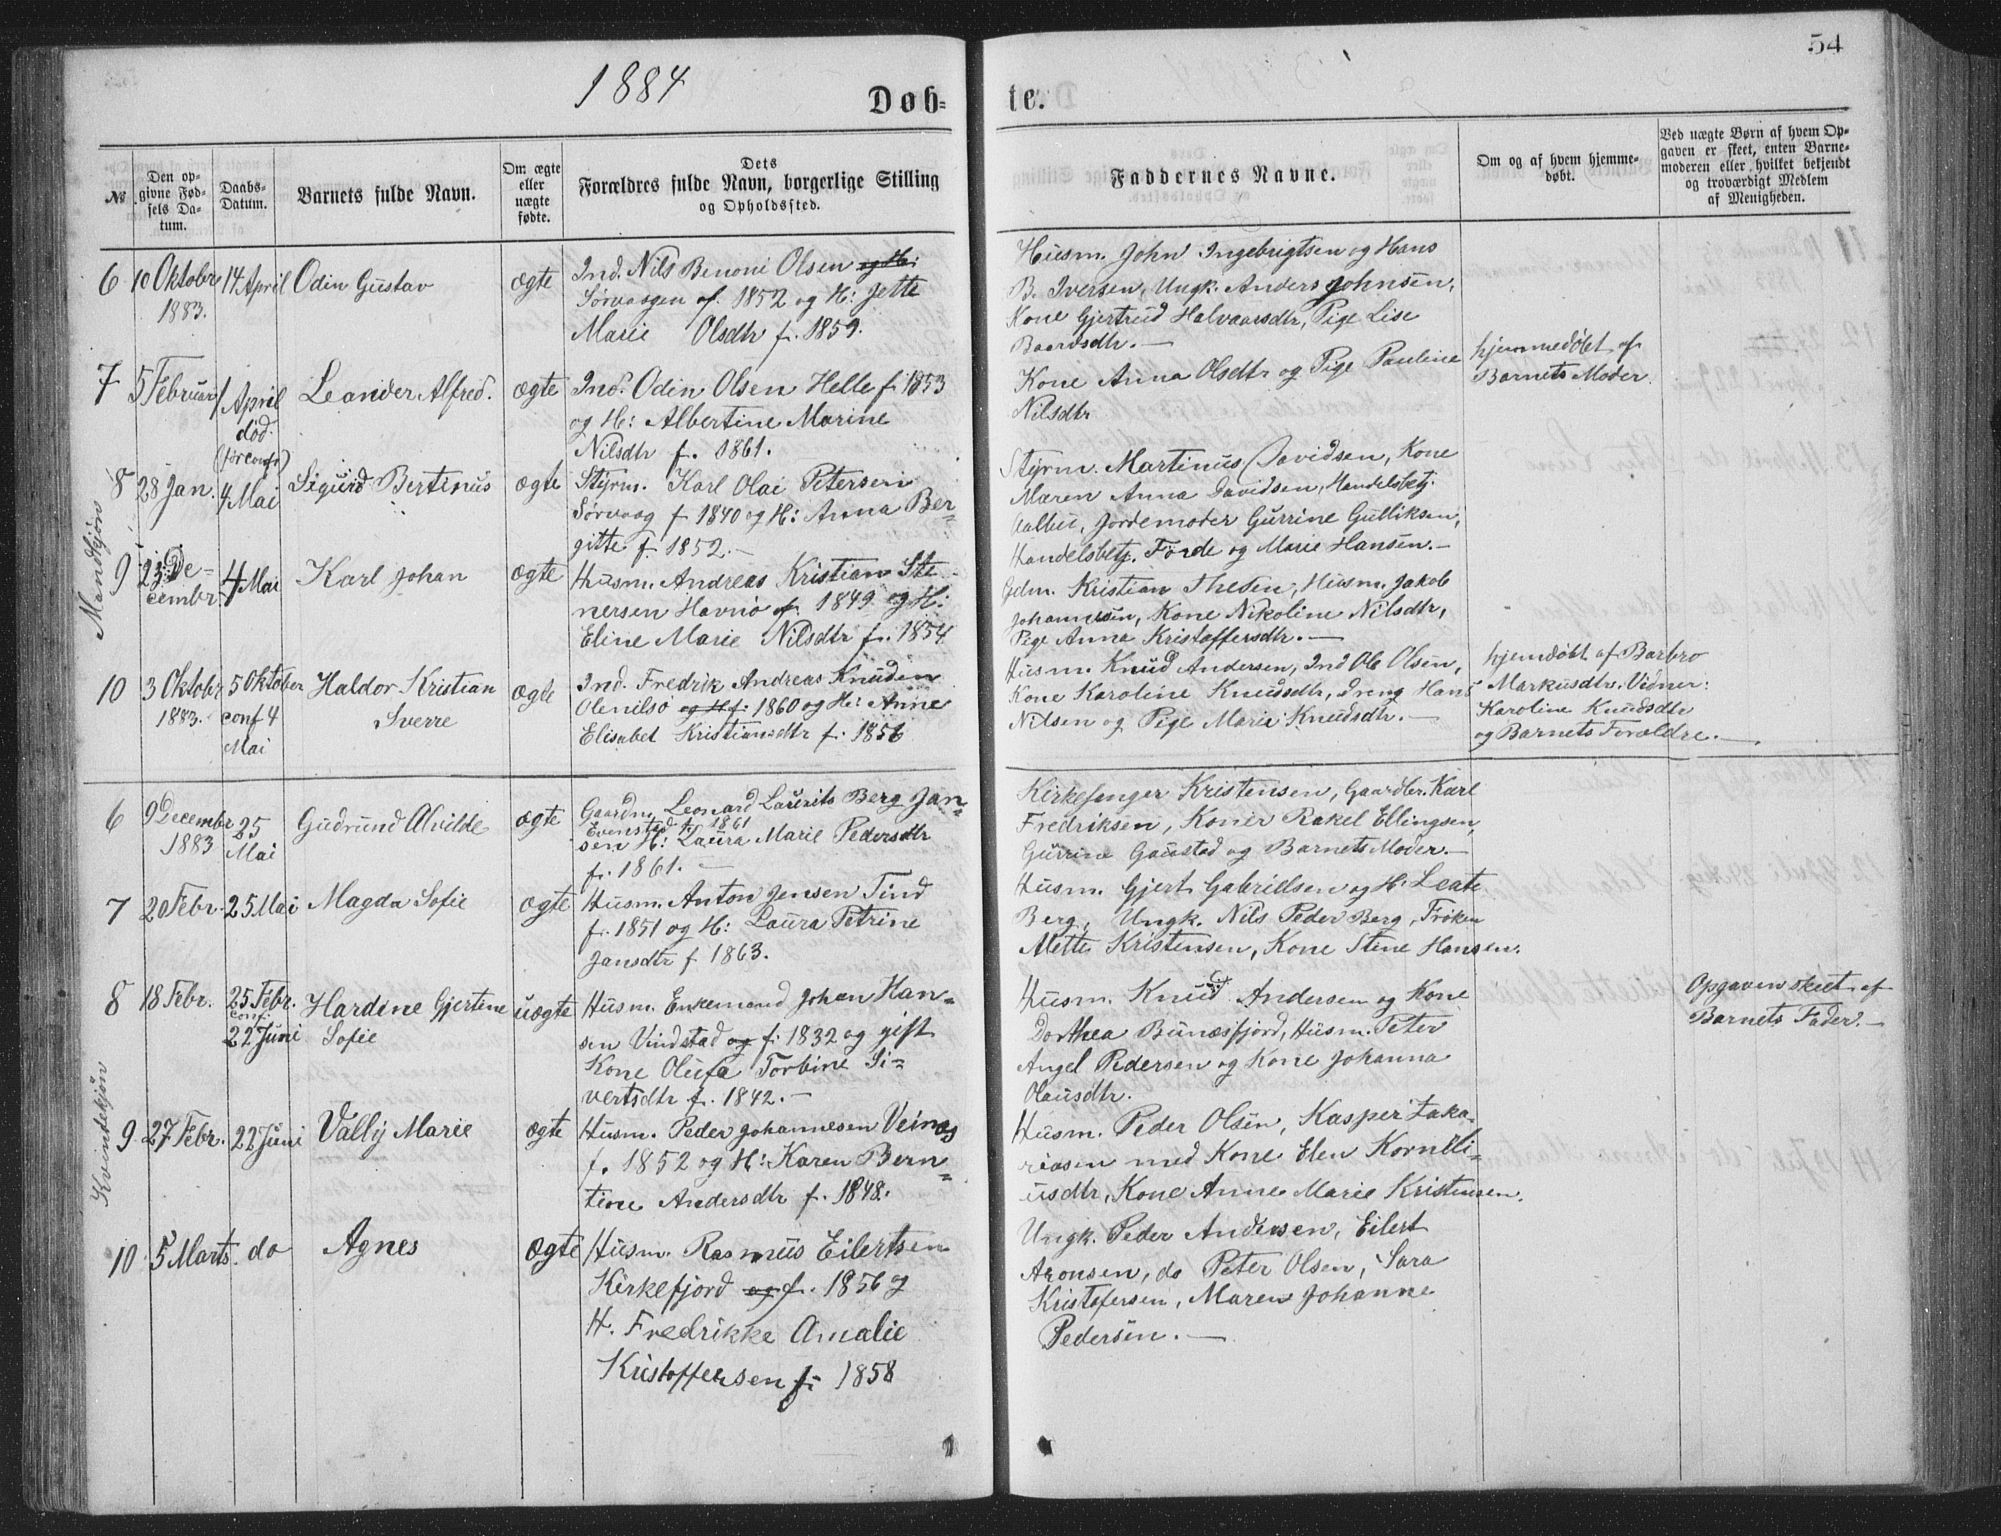 54
1884
Døb-
te.
№
Den op-
givne Fød-
sels Da-
tum.
Daabs-
Datum.
Barnets fulde Navn.
Om ægte
eller
uægte
fødte.
Dets
Forældres fulde Navn, borgerlige Stilling
og Opholdssted.
Faddernes Navne.
Om og af hvem hjemme-
døbt.
Ved uægte Børn af hvem Op-
gaven er skeet, enten Barne-
moderen eller hvilket bekjendt
og troværdigt Medlem
af Menigheden.
Mandkjøn
6
10 Oktober
1883.
14 April
Odin Gustav
ægte
Ind. Nils Benoni Olsen og H:
Sørvaagen f. 1852 og H: Jette
Marie Olsdtr f. 1859.
Husm. John Ingebrigtsen og Hans
B. Iversen, Ungk. Anders Johnsen,
Kone Gjertrud Halvaarsdtr, Pige Lise
Baardsdtr. —
7
5 Februar
1 April
død.
(før conf)
Leander Alfred.
ægte
Ind. Odin Olsen Helle f. 1853
og H: Albertine Marine
Nilsdtr f. 1861.
Kone Anna Olsdtr og Pige Pauline
Nilsdtr
hjemmedøbt af
Barnets Moder.
8
28 Jan.
4 Mai
Sigurd Bertinus
ægte
Styrm. Karl Olai Petersen
Sørvaag f 1840 og H: Anna Ber-
gitte f. 1852. —
Styrm. Martinus Davidsen, Kone
Maren Anna Davidsen, Handelsbetj.
Aalbu, Jordemoder Gurrine Gulliksen,
Handelsbetj. Førde og Marie Hansen. —
9
23 De-
cembr.
4 Mai
Karl Johan
ægte
Husm. Andreas Kristian Ste-
nersen Havnø f. 1849 og H:
Eline Marie Nilsdtr f. 1854
Gdm. Kristian Thesen, Husm. Jakob
Johannesen, Kone Nikoline Nilsdtr,
Pige Anna Kristoffersdtr. —
10
3 Oktobr
1883.
5 Oktober
conf 4
Mai
Haldor Kristian
Sverre
ægte
Ind. Fredrik Andreas Knudsen
Olenilsø og H f. 1860 og H: Anne
Elisabet Kristiansdtr f. 1856
Husm. Knud Andersen, Ind Ole Olsen,
Kone Karoline Knudsdtr, Dreng Hans
Nilsen og Pige Marie Knudsdtr. —
hjemdøbt af Barbro
Markusdtr. Vidner:
Karoline Knudsdtr
og Barnets Forældre. —
Kvindekjøn
6
9 Decembr
1883
25
Mai
Gudrund Alvilde
ægte
Gaardm. Leonard Laurits Berg Jan-
Evenstad f. 1861
sen H: Laura Marie Pedersdtr
f. 1861. —
Kirkesanger Kristensen, Gaardbr. Karl
Fredriksen, Koner Rakel Ellingsen,
Gurrine Gaustad og Barnets Moder. —
7
20 Febr.
25 Mai
Magda Sofie
ægte
Husm. Anton Jensen Tind
f. 1851 og H: Laura Petrine
Jansdtr f. 1863.
Husm. Gjert Gabrielsen og H. Leate
Berg, Ungk. Nils Peder Berg, Frøken
Mette Kristensen, Kone Stine Hansen.
8
18 Febr.
25 Febr.
conf.
22 Juni
Hardine Gjertine
Sofie
uægte
Husm. Enkemand Johan Han-
sen Vindstad og f. 1832 og gift
Kone Olufa Torbine Si-
vertsdtr f. 1842. —
Husm. Knud Andersen og Kone
Dorthea Bunæsfjord, Husm. Peter
Angel Pedersen og Kone Johanna
Olausdtr.
Opgaven skeet af
Barnets Fader. —
9
27 Febr.
22 Juni
Vally Marie
ægte
Husm. Peder Johannesen Veinæs
f. 1852 og H: Karen Bern-
tine Andersdtr f. 1848.
Husm. Peder Olsen, Kasper Zaka-
riasen med Kone Elen Korneli-
usdtr, Kone Anne Marie Kristensen.
10
5 Marts.
do
Agnes
ægte
Husm. Rasmus Eilertsen
Kirkefjord og f. 1856 og
H. Fredrikke Amalie
Kristoffersen f: 1858
Ungk. Peder Andersen, Eilert
Aronsen, do Peter Olsen, Sara
Kristofersen, Maren Johanne
Pedersen. —